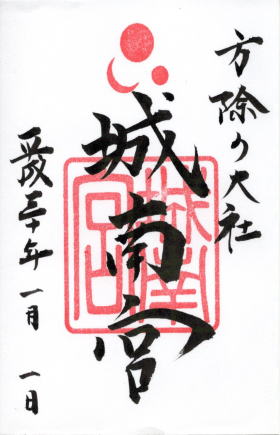 方除の大社
城南宮
平成三十年一月一日
城南宮